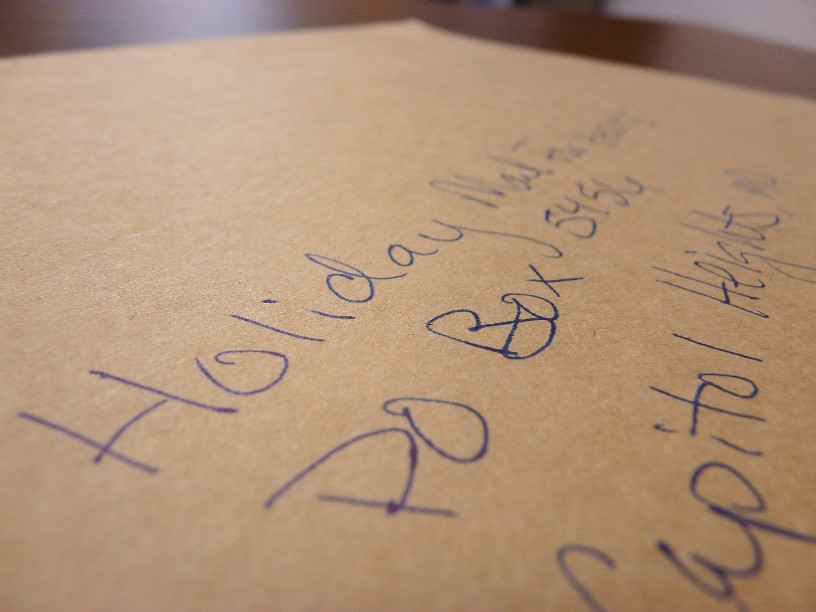 Holiday Mail
PO Box 5456
Capitol Heights,